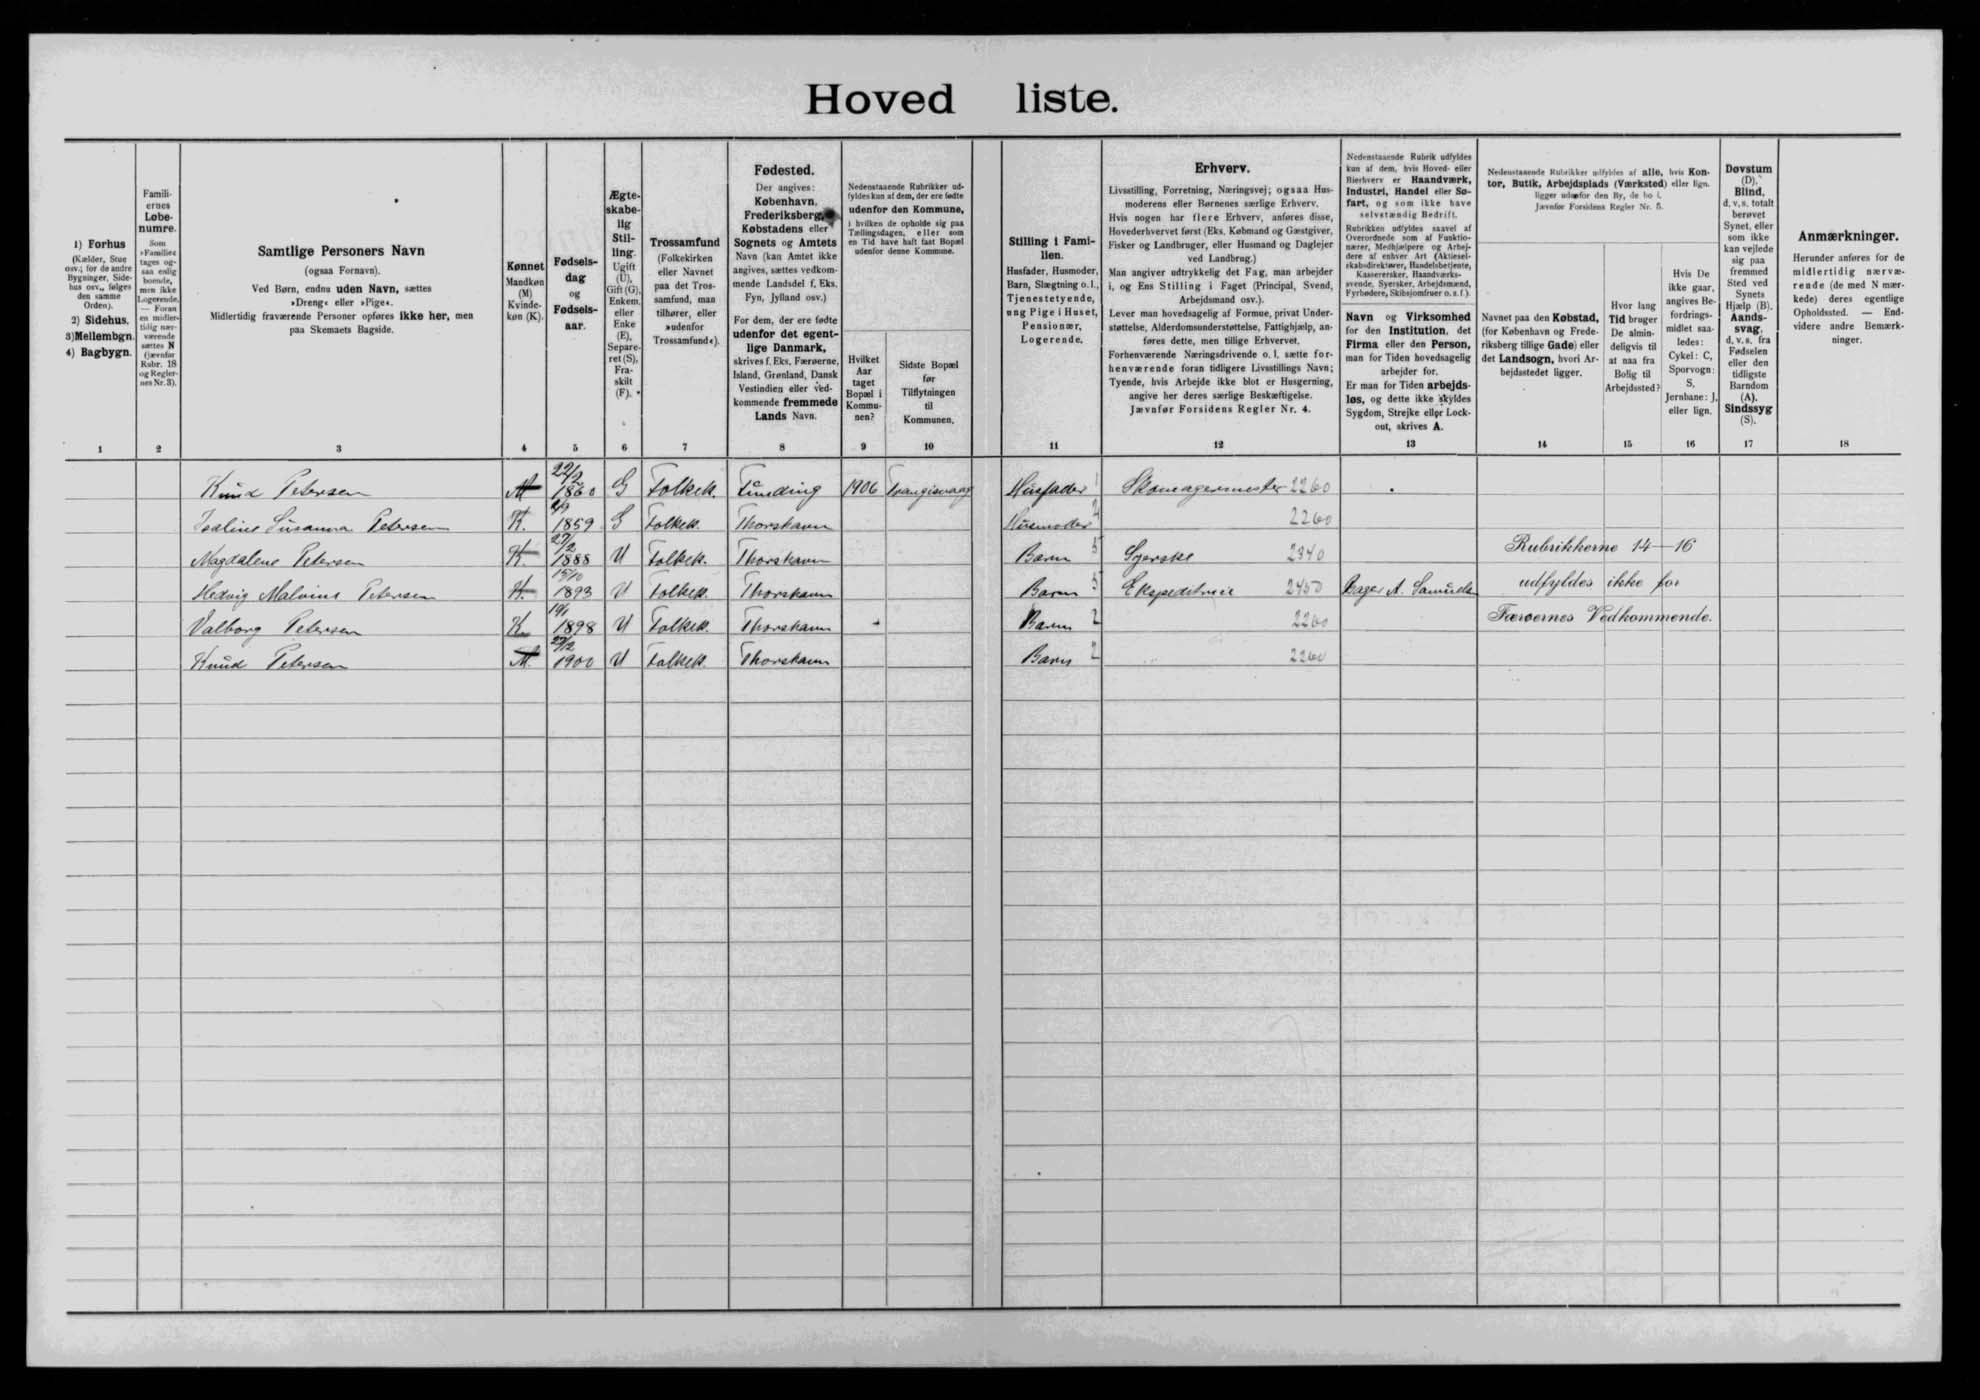 Hovedliste.
1) Forhus
(Kælder, Stue
osv.; for de andre
Bygninger, Side-
hus osv., følges
den samme
Orden).
2) Sidehus.
3) Mellembgn.
4) Bagbygn.
Famili-
ernes
Løbe-
numre.
Som
»Familie«
tages og-
saa enlig
boende,
men ikke
Logerende.
— Foran
en midler-
tidig nær-
værende
sættes N
(jævnfør
Rubr. 18
og Regler-
nes Nr. 3).
Samtlige Personers Navn
(ogsaa Fornavn).
Ved Børn, endnu uden Navn, sættes
»Dreng« eller »Pige«.
Midlertidig fraværende Personer opføres ikke her, men
paa Skemaets Bagside.
Kønnet
Mandkøn
(M)
Kvinde-
køn (K).
Fødsels-
dag
og
Fødsels-
aar.
Ægte-
skabe-
lig
Stil-
ling.
Ugift
(U),
Gift (G),
Enkem.
eller
Enke
(E),
Separe-
ret (S),
Fra-
skilt
(F).
Trossamfund
(Folkekirken
eller Navnet
paa det Tros-
samfund, man
tilhører, eller
»udenfor
Trossamfund«).
Fødested.
Der angives:
København,
Frederiksberg,
Købstadens eller
Sognets og Amtets
Navn (kan Amtet ikke
angives, sættes vedkom-
mende Landsdel f. Eks.
Fyn, Jylland osv.)
For dem, der ere fødte
udenfor det egent-
lige Danmark,
skrives f. Eks. Færøerne,
Island, Grønland, Dansk
Vestindien eller ved-
kommende fremmede
Lands Navn.
Nedenstaaende Rubrikker ud-
fyldes kun af dem, der ere fødte
udenfor den Kommune,
i hvilken de opholde sig paa
Tællingsdagen, eller som
en Tid have haft fast Bopæl
udenfor denne Kommune.
Hvilket
Aar
taget
Bopæl i
Kommu-
nen?
Sidste Bopæl
før
Tilflytningen
til
Kommunen.
Stilling i Fami-
lien.
Husfader, Husmoder,
Barn, Slægtning o. l.,
Tjenestetyende,
ung Pige i Huset,
Pensionær,
Logerende.
Erhverv.
Livsstilling, Forretning, Næringsvej; ogsaa Hus-
moderens eller Børnenes særlige Erhverv.
Hvis nogen har flere Erhverv, anføres disse,
Hovederhvervet først (Eks. Købmand og Gæstgiver,
Fisker og Landbruger, eller Husmand og Daglejer
ved Landbrug.)
Man angiver udtrykkelig det Fag, man arbejder
i, og Ens Stilling i Faget (Principal, Svend,
Arbejdsmand osv.).
Lever man hovedsagelig af Formue, privat Under-
støttelse, Alderdomsunderstøttelse, Fattighjælp, an-
føres dette, men tillige Erhvervet.
Forhenværende Næringsdrivende o. l. sætte for-
henværende foran tidligere Livsstillings Navn;
Tyende, hvis Arbejde ikke blot er Husgerning,
angive her deres særlige Beskæftigelse.
Jævnfør Forsidens Regler Nr. 4.
Nedenstaaende Rubrik udfyldes
kun af dem, hvis Hoved- eller
Bierhverv er Haandværk,
Industri, Handel eller Sø-
fart, og som ikke have
selvstændig Bedrift.
Rubrikken udfyldes saavel af
Overordnede som af Funktio-
nærer, Medhjælpere og Arbej-
dere af enhver Art (Aktiesel-
skabsdirektører, Handelsbetjente,
Kassererske, Haandværks-
svende, Syersker, Arbejdsmænd,
Fyrbødere, Skibsjomfruer o. s. f.).
Navn og Virksomhed
for den Institution, det
Firma eller den Person,
man for Tiden hovedsagelig
arbejder for.
Er man for Tiden arbejds-
løs, og dette ikke skyldes
Sygdom, Strejke eller Lock-
out, skrives A.
Nedenstaaende Rubrikker udfyldes af alle, hvis Kon-
tor, Butik, Arbejdsplads (Værksted) eller lign.
ligger udenfor den By, de bo i.
Jævnfør Forsidens Regler Nr. 5.
Navnet paa den Købstad,
(for København og Frede-
riksberg tillige Gade) eller
det Landsogn, hvori Ar-
bejdsstedet ligger.
Hvor lang
Tid bruger
De almin-
deligvis til
at naa fra
Bolig til
Arbejdssted?
Hvis De
ikke gaar,
angives Be-
fordrings-
midlet saa-
ledes:
Cykel: C,
Sporvogn:
S,
Jernbane: J,
eller lign.
Døvstum
(D).
Blind,
d. v. s. totalt
berøvet
Synet, eller
som ikke
kan vejlede
sig paa
fremmed
Sted ved
Synets
Hjælp (B).
Aands-
svag,
d. v. s. fra
Fødselen
eller den
tidligste
Barndom
(A).
Sindssyg
(S).
Anmærkninger.
Herunder anføres for de
midlertidig nærvæ-
rende (de med N mær-
kede) deres egentlige
Opholdssted. — End-
videre andre Bemærk-
ninger.
1 2 3 4 5 6 7 8 9 10 11 12 13 14 15 16 17 18
Knud Petersen M 22/2 1860 G Folkek. Funding 1906 Trangisvaag Husfader 1 Skomagermester 2260
Susanna Petersen K. 1859 G Folkek. Thorshavn Husmoder 2 2260
Magdalene Petersen K 27/2 1888 U Folkek. Thorshavn Barn 5 Syerske 2340
Hedvig Malvine Petersen K. 15/10 1893 U Folkek. Thorshavn Barn 5 Ekspeditrice 2450 Bager A. Samuelsen
Valborg Petersen K. 19/1 1898 U Folkek. Thorshavn Barn 2 2260
Knud Petersen M. 27/12 1900 U Folkek. Thorshavn Barn 2 2260
Rubrikkerne 14—16
udfyldes ikke for
Færøernes Vedkommende.